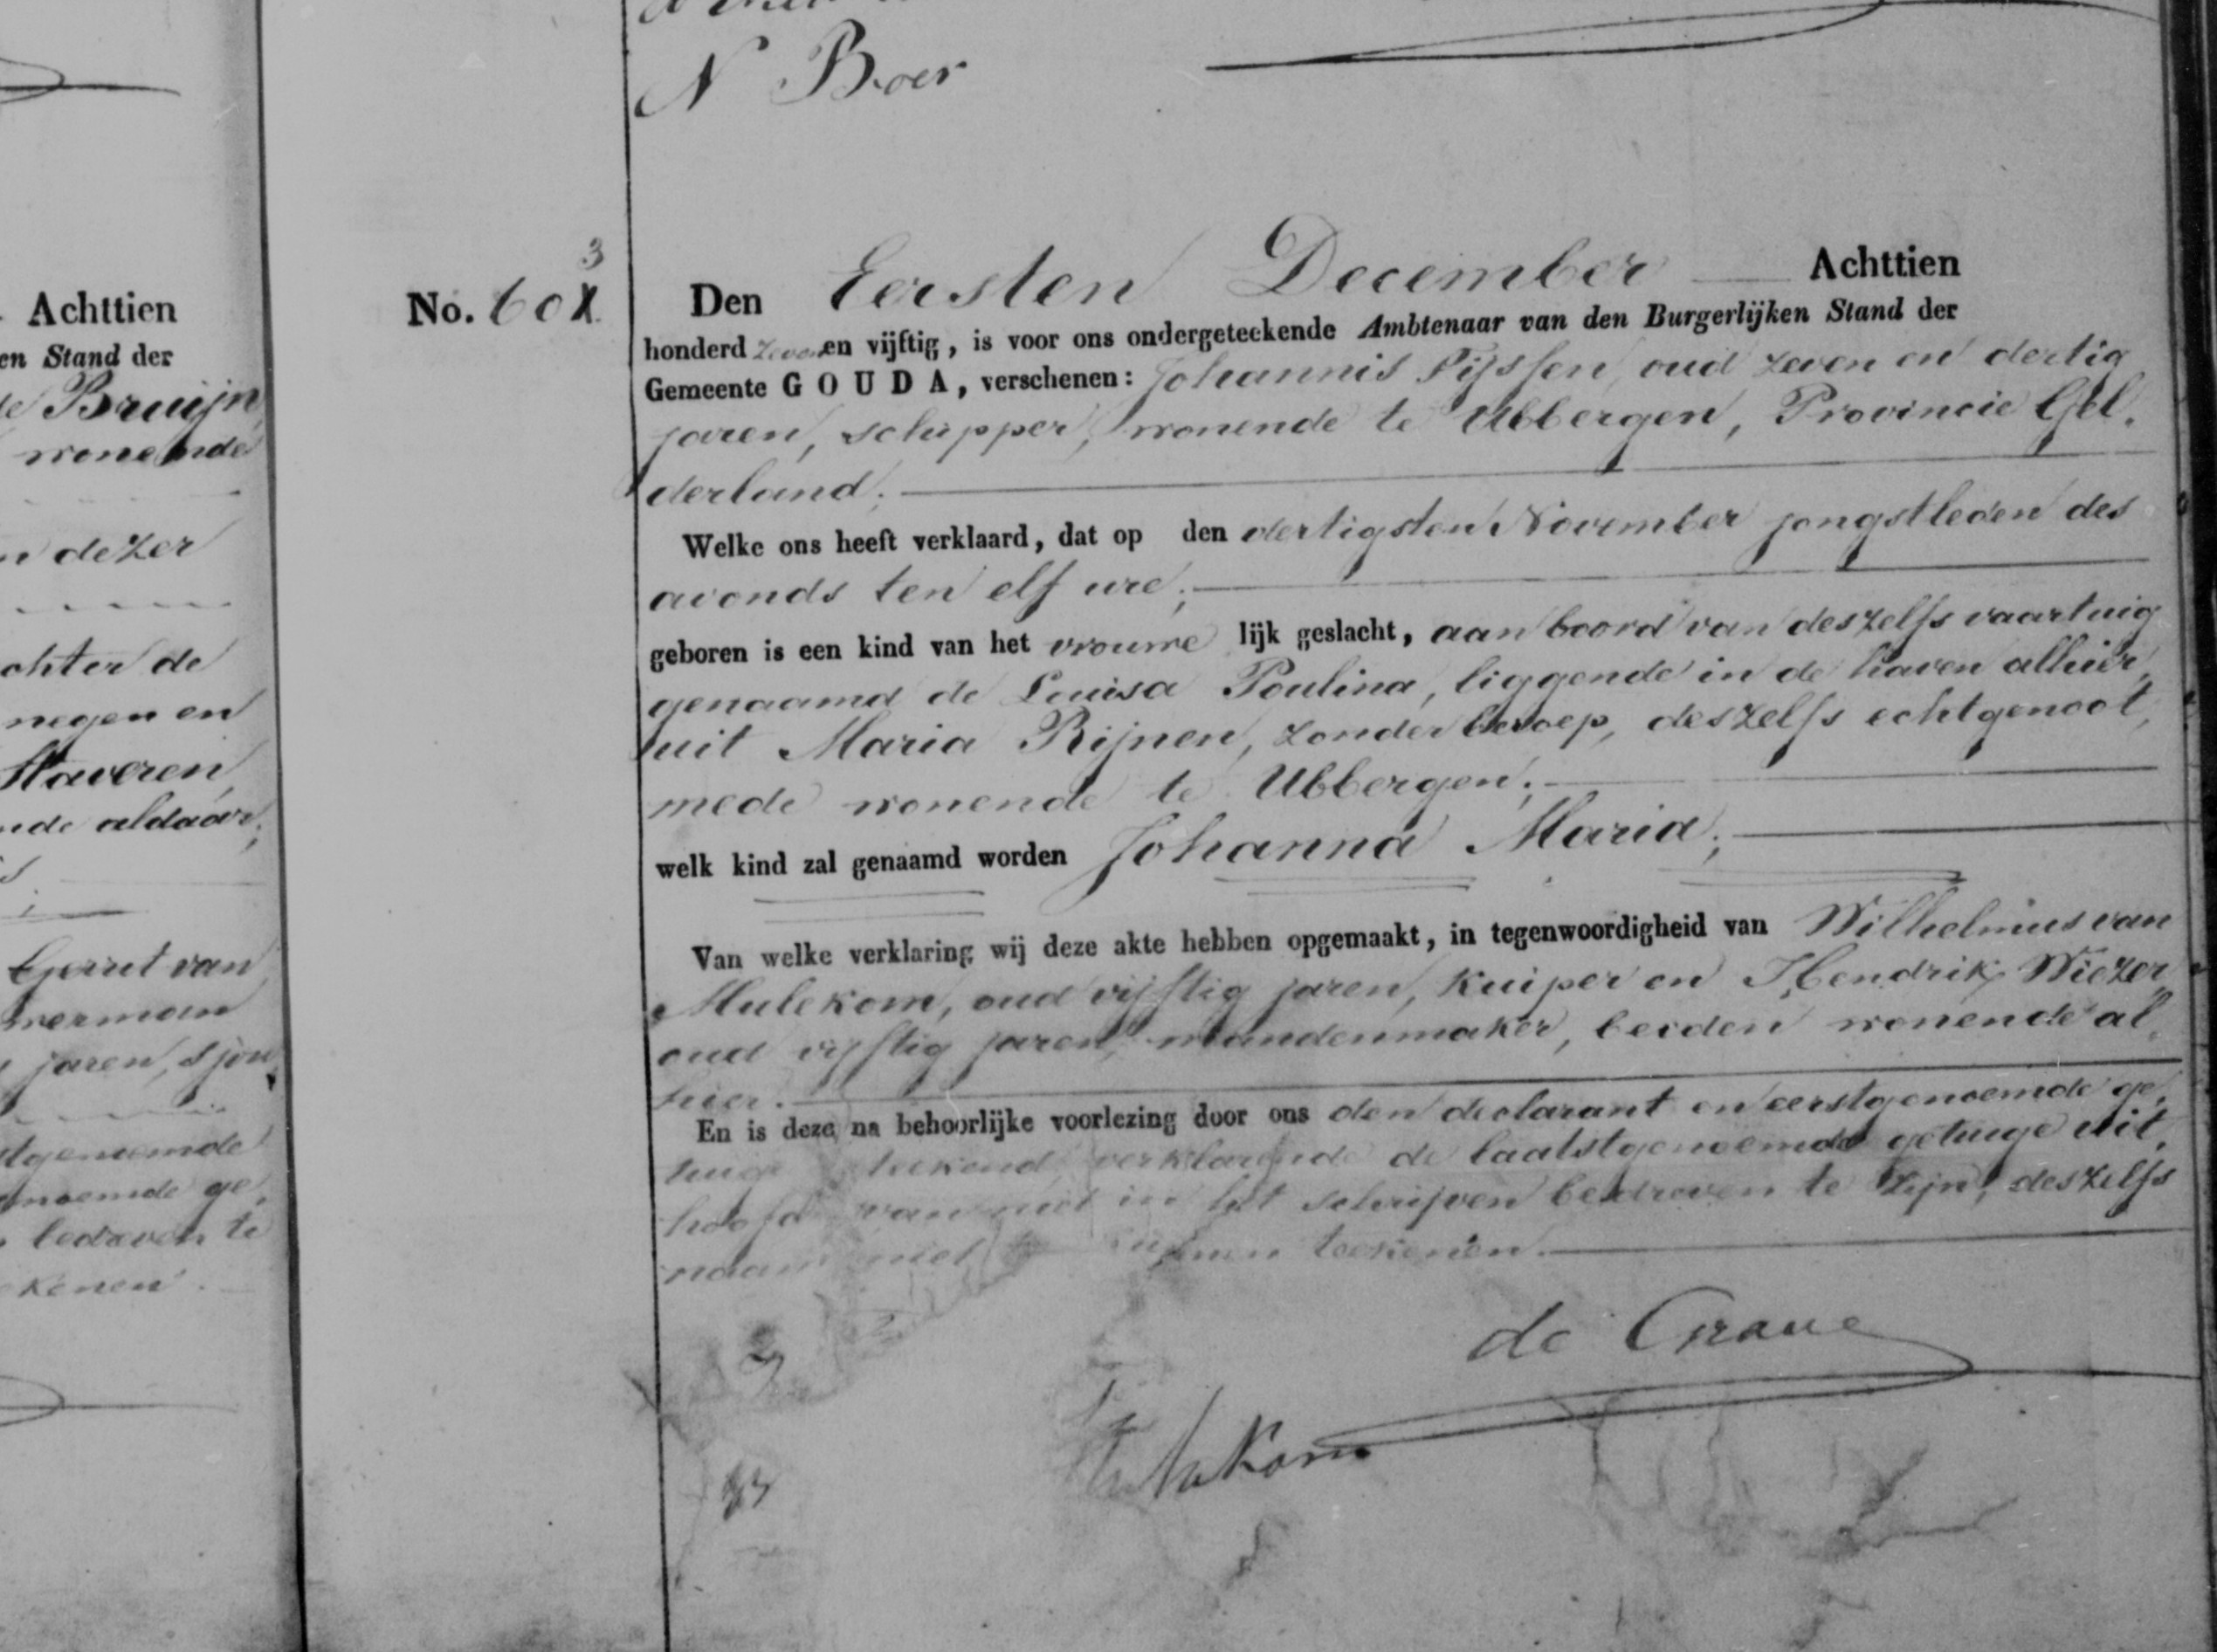 N Boer
Achttien
en Stand der
de Bruijn,
wonende
dezer
achter de
negen en
Staveren,
nde aldaar;
Gerrit van
jaren, sjou
stgenoemde
noemde ge,
bedreven te
ekenen.
3
No. 60X
Den Eersten December Achttien
honderd zeven en vijftig, is voor ons ondergeteekende Ambtenaar van den Burgerlijken Stand der
Gemeente GOUDA, verschenen: Johannis Tijssen, oud zeven en dertig
jaren, schipper, wonende te Ubbergen, Provincie Gel,
derland;
Welke ons heeft verklaard, dat op den dertigsten November jongstleden des
avonds ten elf ure;
geboren is een kind van het vrouwe lijk geslacht, aan boord van deszelfs vaartuig
genaamd de Louisa Poulina, liggende in de haven alhier,
uit Maria Rijnen, zonder beroep, deszelfs echtgenoot,
mede wonende te Ubbergen;
welk kind zal genaamd worden Johanna Maria;
Van welke verklaring wij deze akte hebben opgemaakt, in tegenwoordigheid van Wilhelmus van
Mulekom, oud vijftig jaren, kuiper en Hendrik Wiezer,
oud vijftig jaren, mandenmaker, beiden wonende al,
hier.
En is deze na behoorlijke voorlezing door ons den declarant en eerstgenoemde ge,
tuige teekend, verklarende de laatstgenoemde getuige uit,
hoofde van niet in het schrijven bedreven te zijn, deszelfs
naam niet te kunnen teekenen.
de Grave